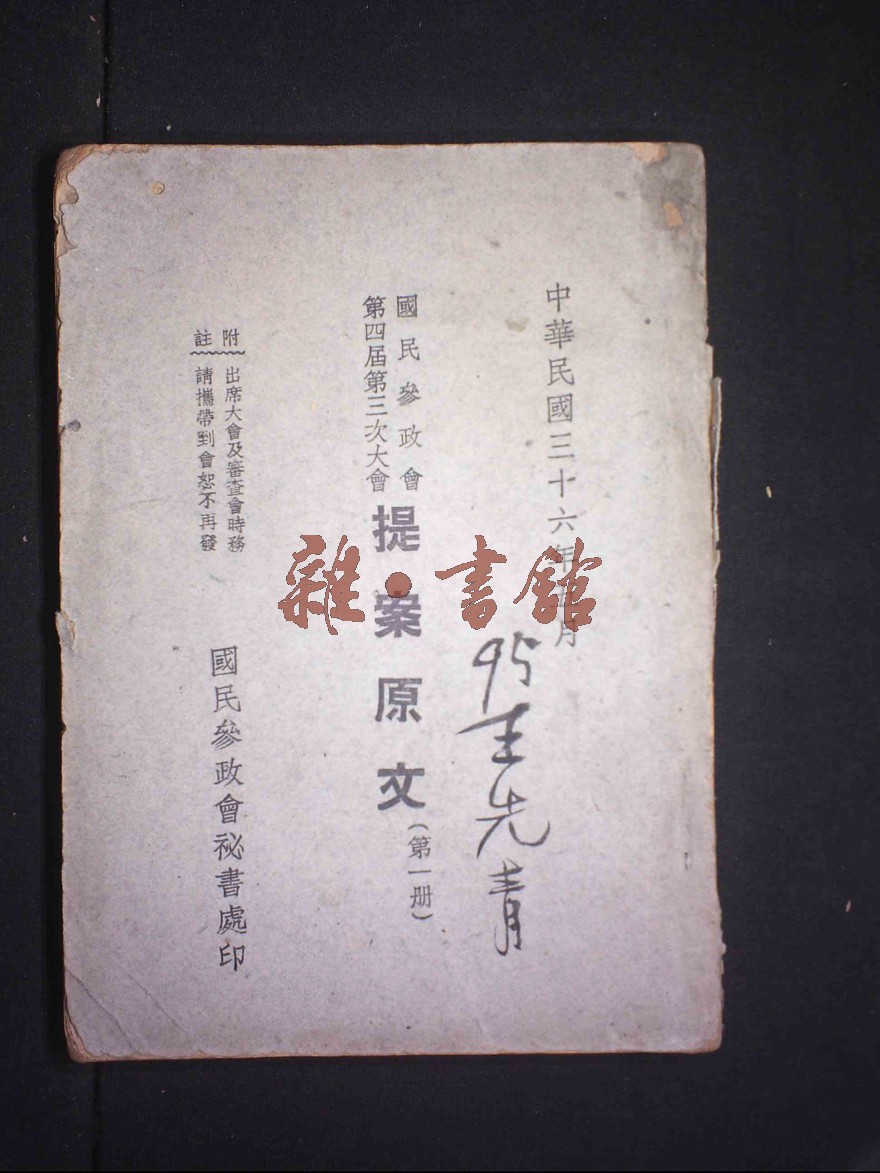 中華民國三十六年五月
95 王先青
國民參政會
第四屆第三次大會
提案原文(第一册)
附註
出席大會及審查會時務
請攜帶到會恕不再發
國民參政會祕書處印
雜·書館